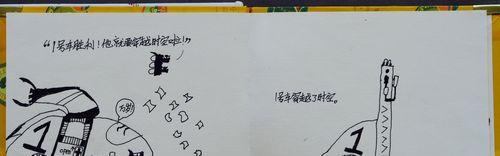 “1号车胜利！他就要穿越时空啦！”
万岁
1
1号车穿越了时空。
1